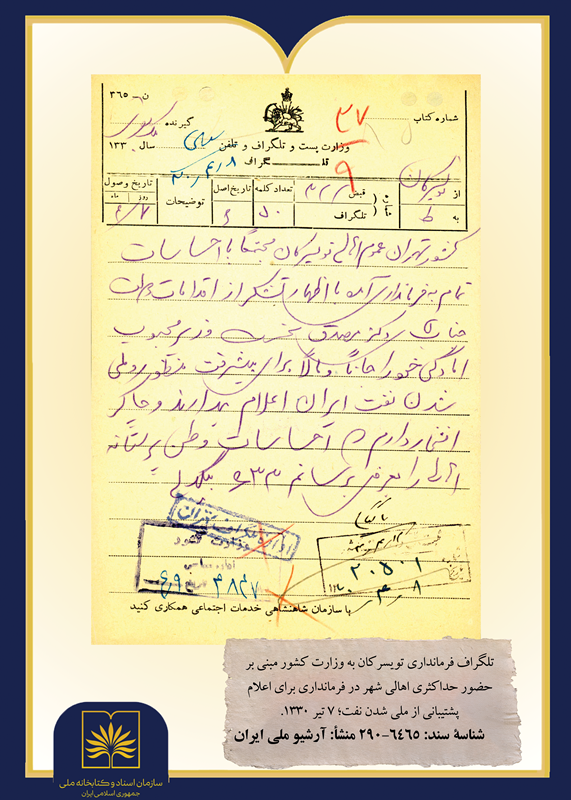 ن - ۳۶۵
شماره کتاب
۳۷
۹
گیرنده
وزارت پست و تلگراف و تلفن
سال ۱۳۳۰
تلـــگراف
از تویسرکان
به ط
قبض
تلگراف
تعداد کلمه
۵۰
تاریخ اصل
۶
توضیحات
تاریخ وصول
روز ماه
کشور تهران عموم اهالی تویسرکان مجتمعا با احساسات
تمام به فرمانداری آمده با اظهار تشکر از اقدامات
جناب آقای دکتر مصدق نخست وزیر محبوب
آمادگی خود را جانا و مالا برای پیشرفت منظور و ملی
شدن نفت ایران اعلام میدارند و چاکر
افتخار دارم که احساسات وطن پرستانه
اهالی را بعرض برسانم
اداره تلگراف تهران
وزارت کشور
اداره سیاسی
۳۸۴۷
۲۰۵۰۱
۴ . ۸
با سازمان شاهنشاهی خدمات اجتماعی همکاری کنید
تلگراف فرمانداری تویسرکان به وزارت کشور مبنی بر
حضور حداکثری اهالی شهر در فرمانداری برای اعلام
پشتیبانی از ملی شدن نفت؛ ۷ تیر ۱۳۳۰.
شناسهٔ سند: ۶۴۶۵-۲۹۰ منشأ: آرشیو ملی ایران
سازمان اسناد و کتابخانه ملی
جمهوری اسلامی ایران